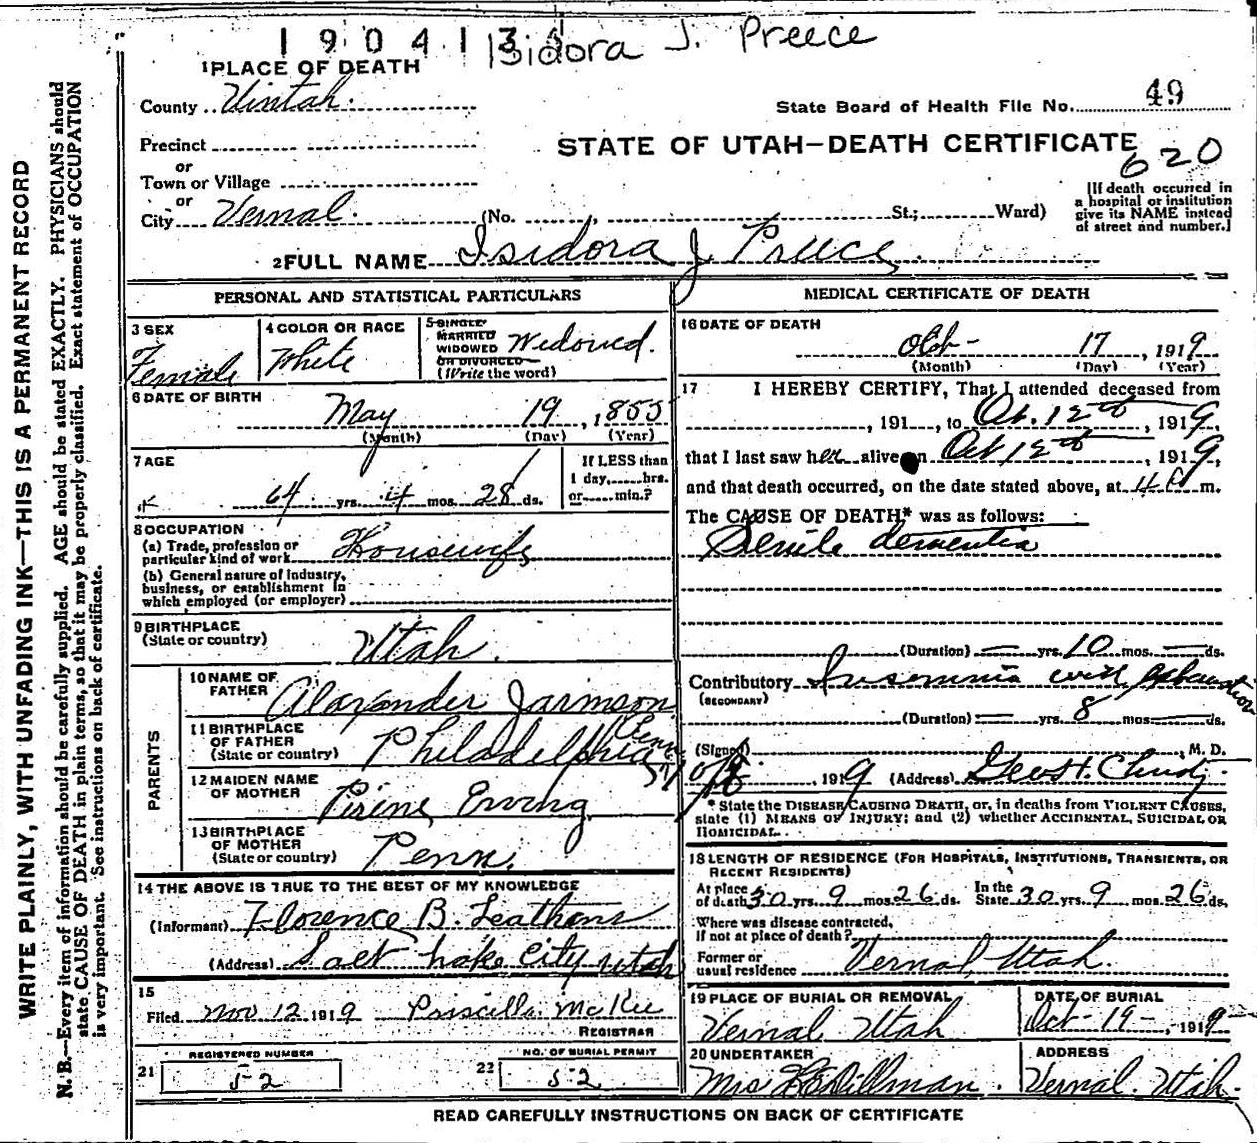 1904134
Isidora J. Preece
1 PLACE OF DEATH
County Uintah.
State Board of Health File No. 49
Precinct
STATE OF UTAH—DEATH CERTIFICATE
620
or
Town or Village
or
City Vernal. (No. , St.; Ward)
[If death occurred in
a hospital or institution
give its NAME instead
of street and number.]
2 FULL NAME Isidora J Preece
PERSONAL AND STATISTICAL PARTICULARS
3 SEX
Female
4 COLOR OR RACE
White
5 SINGLE
MARRIED
WIDOWED
OR DIVORCED
(Write the word)
Widowed.
6 DATE OF BIRTH
May 19, 1855
(Month) (Day) (Year)
7 AGE
64 yrs. 4 mos. 28 ds.
If LESS than
1 day, hrs.
or min.?
8 OCCUPATION
(a) Trade, profession or
particular kind of work Housewife
(b) General nature of industry,
business, or establishment in
which employed (or employer)
9 BIRTHPLACE
(State or country) Utah.
PARENTS
10 NAME OF
FATHER Alexander Jarmson
11 BIRTHPLACE
OF FATHER
(State or country) Philadelphia Penn
12 MAIDEN NAME
OF MOTHER Pirine Erving
13 BIRTHPLACE
OF MOTHER
(State or country) Penn.
14 THE ABOVE IS TRUE TO THE BEST OF MY KNOWLEDGE
(Informant) Florence B. Leathans
(Address) Salt Lake City Utah
15
Filed Nov 12 1919 Priscilla McKee
REGISTRAR
21 REGISTERED NUMBER
52
22 NO. OF BURIAL PERMIT
52
MEDICAL CERTIFICATE OF DEATH
16 DATE OF DEATH
Oct- 17, 1919
(Month) (Day) (Year)
17 I HEREBY CERTIFY, That I attended deceased from
, 191 , to Oct. 12th, 1919,
that I last saw her alive on Oct 12th, 1919,
and that death occurred, on the date stated above, at 4 m.
The CAUSE OF DEATH* was as follows:
Senile dementia
(Duration) — yrs. 10 mos. — ds.
Contributory Insomnia with exhaustion
(SECONDARY)
(Duration) — yrs. 8 mos. — ds.
(Signed) , M. D.
1919 (Address) Geo H. Christy
* State the DISEASE CAUSING DEATH, or, in deaths from VIOLENT CAUSES,
state (1) MEANS OF INJURY; and (2) whether ACCIDENTAL, SUICIDAL OR
HOMICIDAL.
18 LENGTH OF RESIDENCE (FOR HOSPITALS, INSTITUTIONS, TRANSIENTS, OR
RECENT RESIDENTS)
At place
of death 30 yrs. 9 mos. 26 ds. In the
State 30 yrs. 9 mos. 26 ds.
Where was disease contracted,
if not at place of death?
Former or
usual residence Vernal, Utah.
19 PLACE OF BURIAL OR REMOVAL
Vernal Utah
DATE OF BURIAL
Oct- 19-, 1919
20 UNDERTAKER
Mrs Dillman.
ADDRESS
Vernal. Utah.
READ CAREFULLY INSTRUCTIONS ON BACK OF CERTIFICATE
WRITE PLAINLY, WITH UNFADING INK—THIS IS A PERMANENT RECORD
N. B.—Every item of information should be carefully supplied. AGE should be stated EXACTLY. PHYSICIANS should
state CAUSE OF DEATH in plain terms, so that it may be properly classified. Exact statement of OCCUPATION
is very important. See instructions on back of certificate.